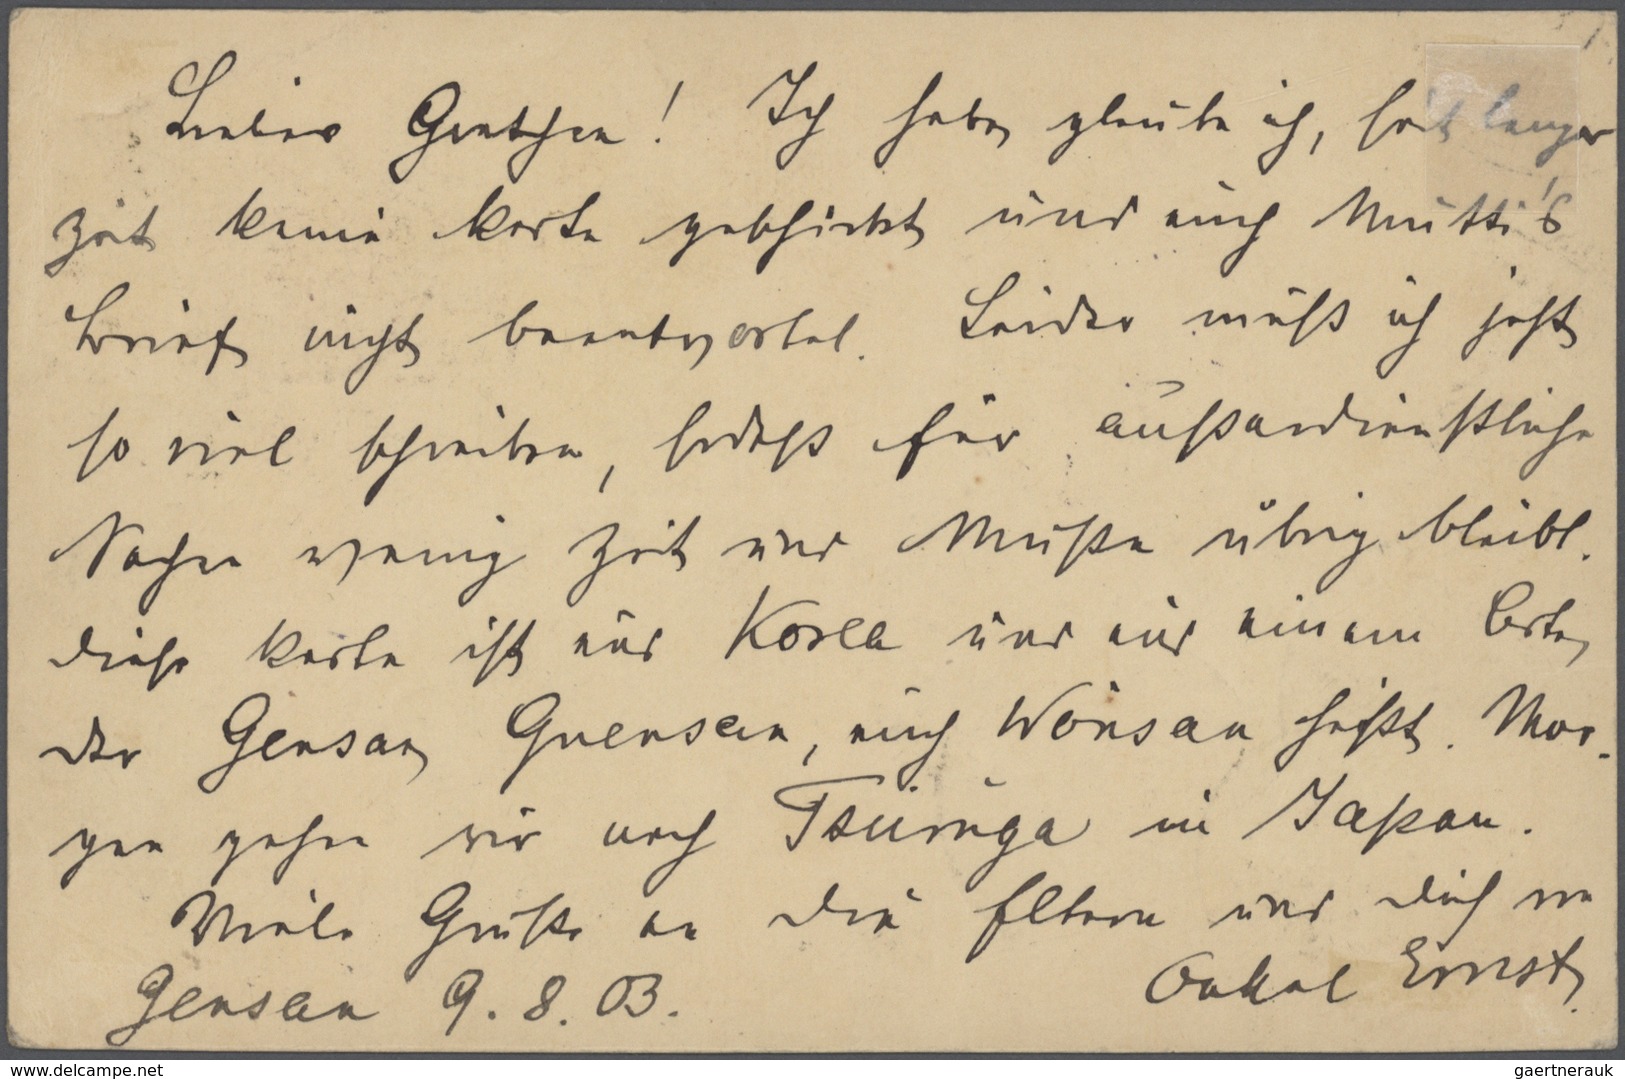 Liebes Gretchen! Ich habe, glaube ich, seit langer
Zeit keine Karte geschickt und auch Mutti's
Brief nicht beantwortet. Leider muß ich jetzt
so viel schreiben, sodaß für außerdienstliche
Sachen wenig Zeit und Muße übrig bleibt.
Diese Karte ist aus Korea und aus einem Orte,
der Gensan, Guensan, auch Wönsan heißt. Mor-
gen gehen wir nach Tsuruga in Japan.
Viele Grüße an die Eltern und Dich von
Gensan 9. 8. 03. Onkel Ernst.
www.delcampe.net
gaertnerauk